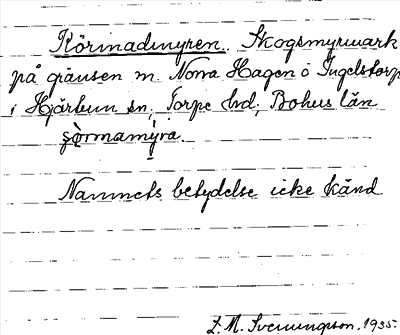 Körmadmyren. Skogsmyrmark
på gränsen m. Norra Hagen o Ingelstorp
i Hjärtum sn, Torpe hd, Bohus län
Nammets betydelse icke känd
L. M. Svenungsson. 1935.